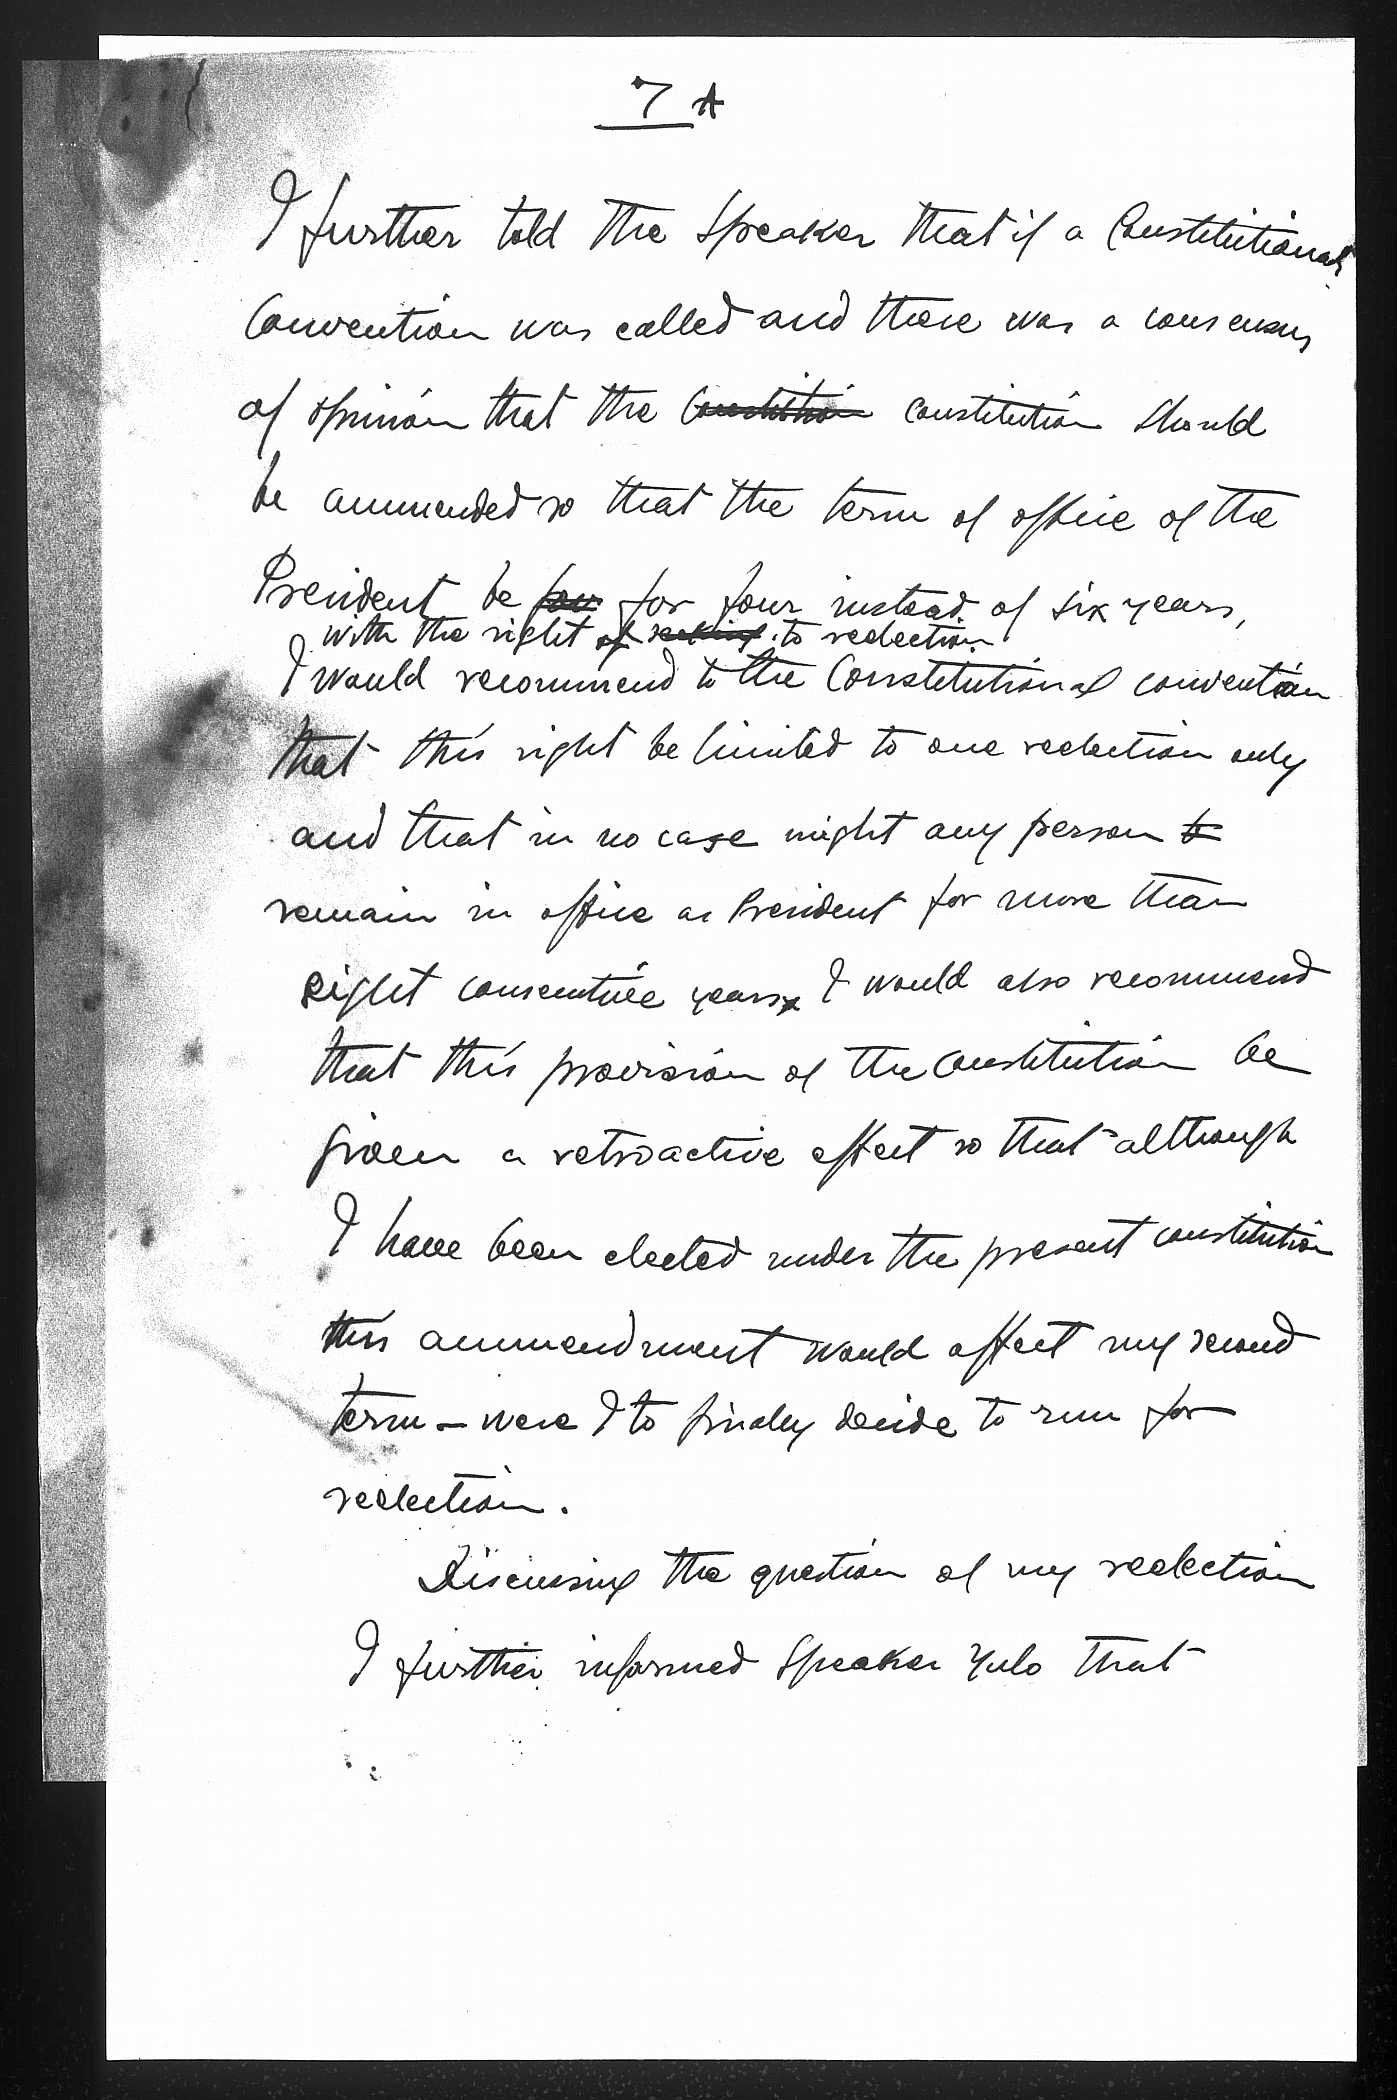 7 A
I further told the Speaker that if a Constitutional
Convention was called and there was a consensus
of opinion that the Constitution constitution should
be ammended so that the term of office of the
President be fou for four instead of six years,
with the right of seeking to reelection
I would recommend to the Constitutional convention
that this right be limited to one reelection only
and that in no case might any person to
remain in office as President for more than
eight consecutive years. I would also recommend
that this provision of the constitution be
given a retroactive effect so that although
I have been elected under the present constitution
this ammendment would affect my second
term – were I to finaly decide to run for
reelection.
Discussing the question of my reelection
I further informed Speaker Yulo that